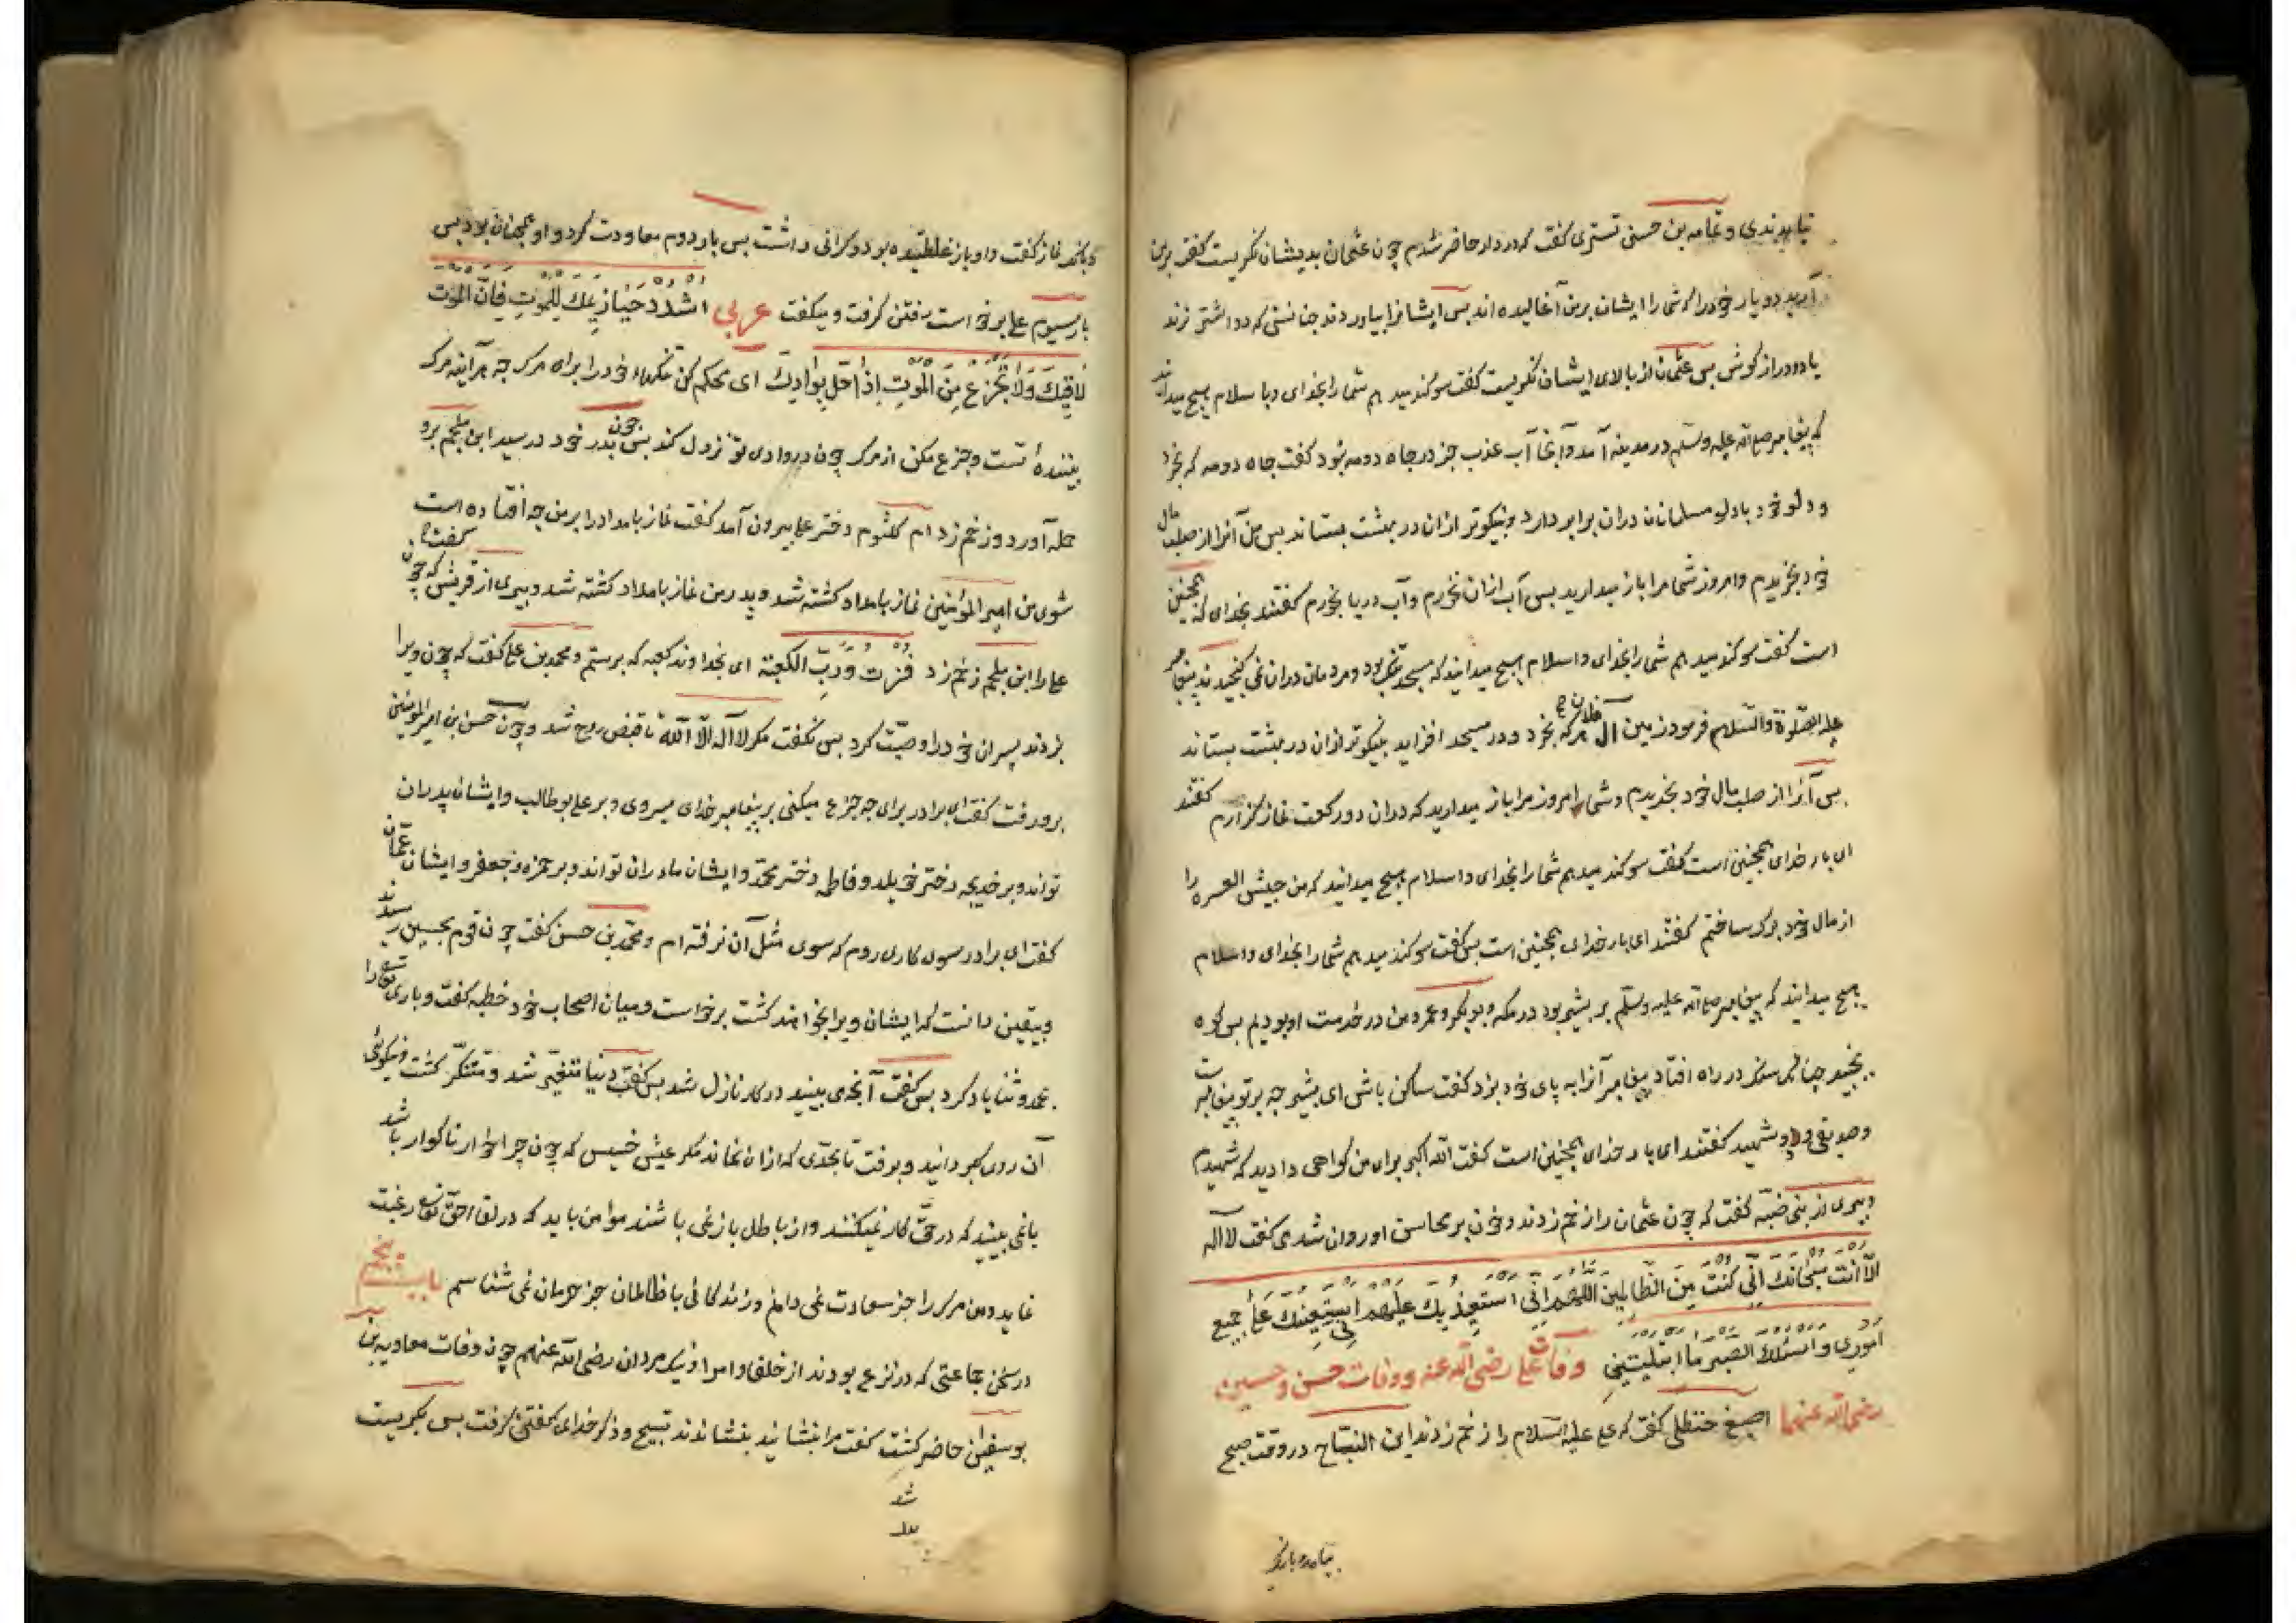 نیابیدندی و ثمامه بن حسنی تستری کفت که در دار حاضر شدم چون عثمان بدیشان نکریست کفت برین
آرید دو یار خود را که شما را ایشان برین آغالیده اند بس ایشانرا بیاوردند چنانستی که دو اشتر نرند
یا دو دراز کوش بس عثمان از بالای ایشان نکریست کفت سوکند میدهم شما را بخدای و باسلام هیچ میدانید
که پیغامبر صلی الله علیه وسلم در مدینه آمد و آنجا آب عذب جز در چاه دومه نبود کفت چاه دومه که بخرد
و دلو خود با دلو مسلمانان دران برابر دارد و نیکوتر ازان در بهشت بستاند بس من آنرا از صلب مال
خود بخریدم و امروز شما مرا باز میدارید بس آب ازان نخورم و آب دریا بخورم کفتند بخدای که همچنین
است کفت سوکند میدهم شما را بخدای و اسلام هیچ میدانید که مسجد تنک بود و مردمان دران نمی کنجیدند پیغامبر
علیه الصلوة والسلام فرمود زمین آل فلان هر که بخرد و در مسجد افزاید نیکوتر ازان در بهشت بستاند
بس آنرا از صلب مال خود بخریدم و شما امروز مرا باز میدارید که دران دو رکعت نماز کزارم کفتند
ای بار خدای همچنین است کفت سوکند میدهم شما را بخدای و اسلام هیچ میدانید که من جیش العسره را
از مال خود برک ساختم کفتند ای بار خدای همچنین است بس کفت سوکند میدهم شما را بخدای و اسلام
هیچ میدانید که پیغامبر صلی الله علیه وسلم بر بثیر بود در مکه و بوبکر و عمر و من در خدمت او بودیم بس کوه
بجنبید چنانکه سنک در راه افتاد پیغامبر آنرا به پای خود بزد کفت ساکن باش ای بثیر چه بر تو پیغامبریست
و صدیقی و دو شهید کفتند ای بار خدای همچنین است کفت الله اکبر برای من کواهی دادید که شهیدم
و پیری از بنی ضبّه کفت که چون عثمان را زخم زدند و خون بر محاسن او روان شد می کفت لا اله
الّا انت سبحانک انّی کنت من الظالمین اللهم انّی استعیذ بک علیهم استعینک علی جمیع
اموری و اسئلک الصبر ما ابتلیتنی وفات علی رضی الله عنه و وفات حسن و حسین
رضی الله عنهما اصبغ حنظلی کفت که علی علیه السلام را زخم زدند ابن النباح در وقت صبح
بیامد و بانک
و بانک نماز کفت و او باز غلطیده بود و کرانی داشت بس بار دوم معاودت کرد و او همچنان بود بس
بار سیوم علی برخواست رفتن کرفت و میکفت عربی اشدد حیازیمک للموت فانّ الموت
لاقیک ولا تجزع من الموت اذا حلّ بوادیک ای محکم کن تنکهاء خود را براه مرک چه هر آینه مرک
بیننده تست و جزع مکن از مرک چون در وادی تو نزول کند بس چون بدر خود در رسید ابن ملجم برو
حمله آورد و زخم زد ام کلثوم دختر علی بیرون آمد کفت نماز بامداد را بر من چه افتاده است
شوی من امیر المؤمنین نماز بامداد کشته شد و پدر من نماز بامداد کشته شد و پیری از قریش کفت که چون
علی را ابن ملجم زخم زد فزت وربّ الکعبة ای بخداوند کعبه که برستم و محمد بن علی کفت که چون ویرا
بزدند پسران خود را وصیّت کرد بس نکفت مکر لا اله الّا الله تا قبض روح شد و چون حسن بن امیر المؤمنین
برو رفت کفت ای برادر برای چه جزع میکنی بر پیغامبر خدای میروی و بر علی بو طالب و ایشان پدران
تو اند و بر خدیجه دختر خویلد و فاطمه دختر محمّد و ایشان مادران تو اند و بر حمزه و جعفر و ایشان عمّان
کفت ای برادر سوی کاری روم که سوی مثل آن نرفته ام و محمّد بن حسن کفت چون قوم بحسین رسیدند
و بیقین دانست که ایشان ویرا بخواهند کشت برخواست و میان اصحاب خود خطبه کفت و باری تعالی را
بحمد و ثنا یاد کرد بس کفت آنچه می بینید در کار نازل شد بس کفت دنیا متغیّر شد و متنکّر کشت و نیکوئی
آن روی بکردانید و برفت تا بحدّی که ازان نماند مکر عیش خسیس که چون چراخوار ناکوار باشد
یا نمی بینید که در حقّ کار نمیکنند و از باطل باز نمی باشند موامن باید که در لقاء حقّ تعالی رغبت
نماید و من مرک را جز سعادت نمی دانم و زندکانی با ظالمان جز حرمان نمی شناسم باب پنجم
در سخن جماعتی که در نزع بودند از خلفا و امرا و نیک مردان رضی الله عنهم چون وفات معاویه بن
بو سفیان حاضر کشت کفت مرا بنشانید بنشاندند تسبیح و ذکر خدای کفتن کرفت بس بکریست